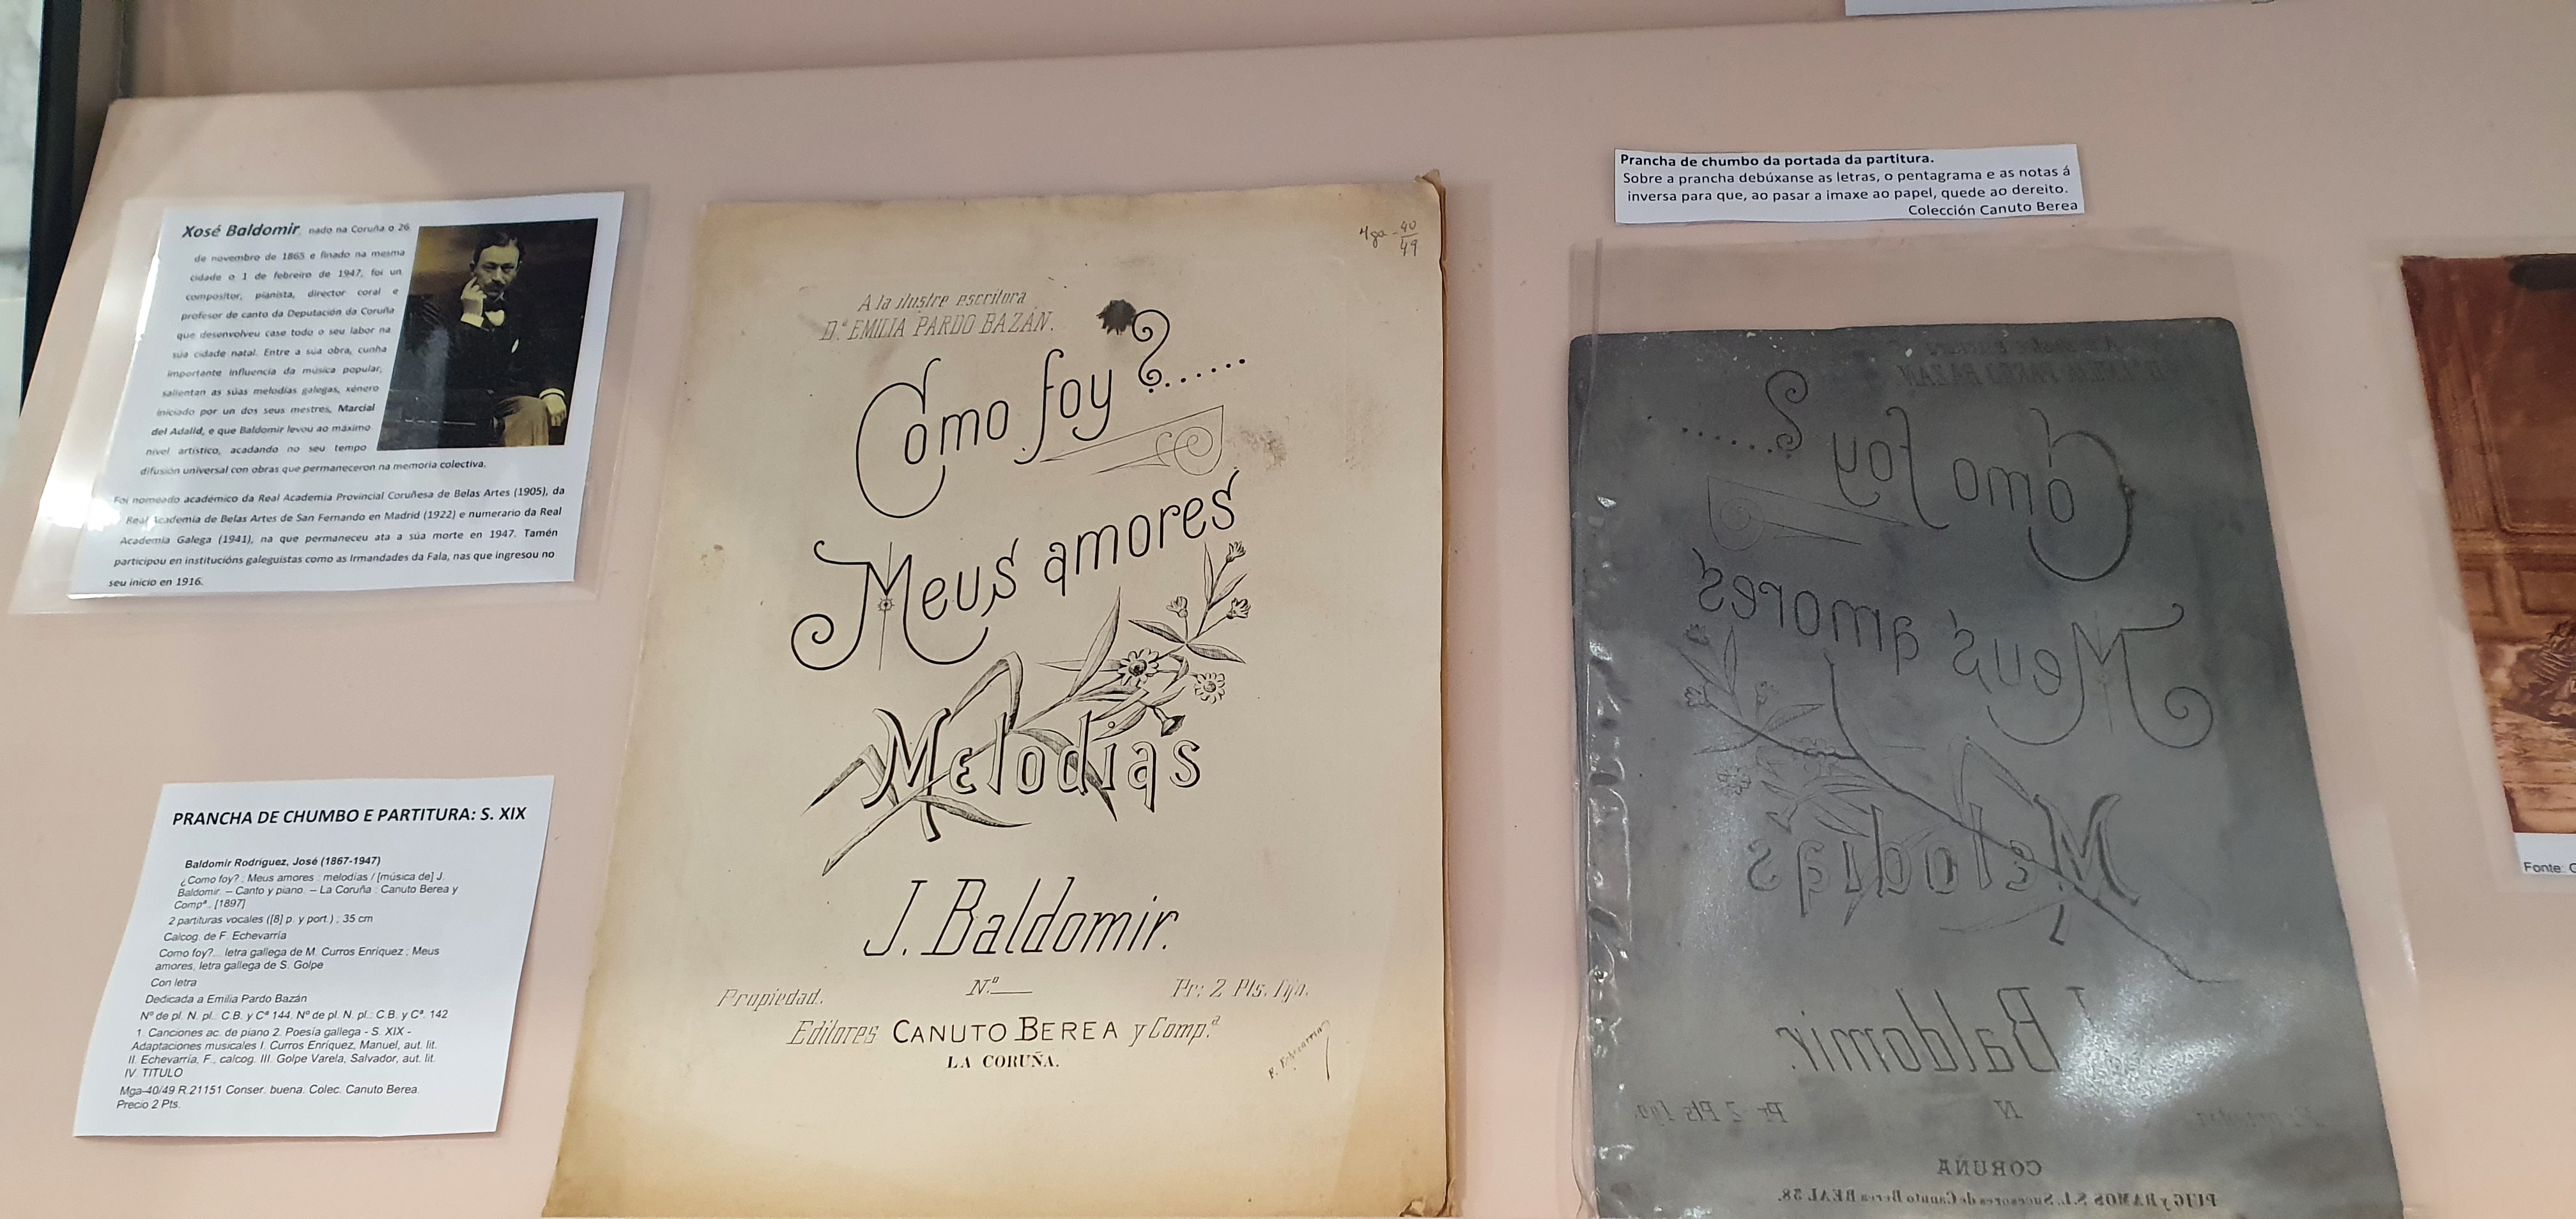 Xosé Baldomir, nado na Coruña o 26
de novembro de 1865 e finado na mesma
cidade o 1 de febreiro de 1947, foi un
compositor, pianista, director coral e
profesor de canto da Deputación da Coruña
que desenvolveu case todo o seu labor na
súa cidade natal. Entre a súa obra, cunha
importante influencia da música popular,
salientan as súas melodías galegas, xénero
iniciado por un dos seus mestres, Marcial
del Adalid, e que Baldomir levou ao máximo
nivel artístico, acadando no seu tempo
difusión universal con obras que permaneceron na memoria colectiva.
Foi nomeado académico da Real Academia Provincial Coruñesa de Belas Artes (1905), da
Real Academia de Belas Artes de San Fernando en Madrid (1922) e numerario da Real
Academia Galega (1941), na que permaneceu ata a súa morte en 1947. Tamén
participou en institucións galeguistas como as Irmandades da Fala, nas que ingresou no
seu inicio en 1916.
PRANCHA DE CHUMBO E PARTITURA: S. XIX
Baldomir Rodríguez, José (1867-1947)
¿Como foy? ; Meus amores : melodías / [música de] J.
Baldomir. – Canto y piano. – La Coruña : Canuto Berea y
Compª., [1897]
2 partituras vocales ([8] p. y port.) ; 35 cm
Calcog. de F. Echevarría
Como foy?... letra gallega de M. Curros Enríquez ; Meus
amores, letra gallega de S. Golpe
Con letra
Dedicada a Emilia Pardo Bazán
Nº de pl. N. pl.: C.B. y Cª 144. Nº de pl. N. pl.: C.B. y Cª. 142
1. Canciones ac. de piano 2. Poesía gallega - S. XIX -
Adaptaciones musicales I. Curros Enríquez, Manuel, aut. lit.
II. Echevarría, F., calcog. III. Golpe Varela, Salvador, aut. lit.
IV. TITULO
Mga-40/49 R.21151 Conser. buena. Colec. Canuto Berea.
Precio 2 Pts.
Mga - 40/49
A la ilustre escritora
D.ª EMILIA PARDO BAZÁN.
Cómo foy?......
Meus amores
Melodías
J. Baldomir.
Propiedad. N.º Pr: 2 Pts. fijo.
Editores CANUTO BEREA y Comp.ª
LA CORUÑA.
F. Echevarría
Prancha de chumbo da portada da partitura.
Sobre a prancha debúxanse as letras, o pentagrama e as notas á
inversa para que, ao pasar a imaxe ao papel, quede ao dereito.
Colección Canuto Berea
Dª EMILIA PARDO BAZAN
Cómo foy?......
Meus amores
Melodías
J. Baldomir.
N Pr: 2 Pts fijo.
CORUÑA
PUIG y RAMOS S.L. Sucesores de Canuto Berea REAL 38.
Fonte: